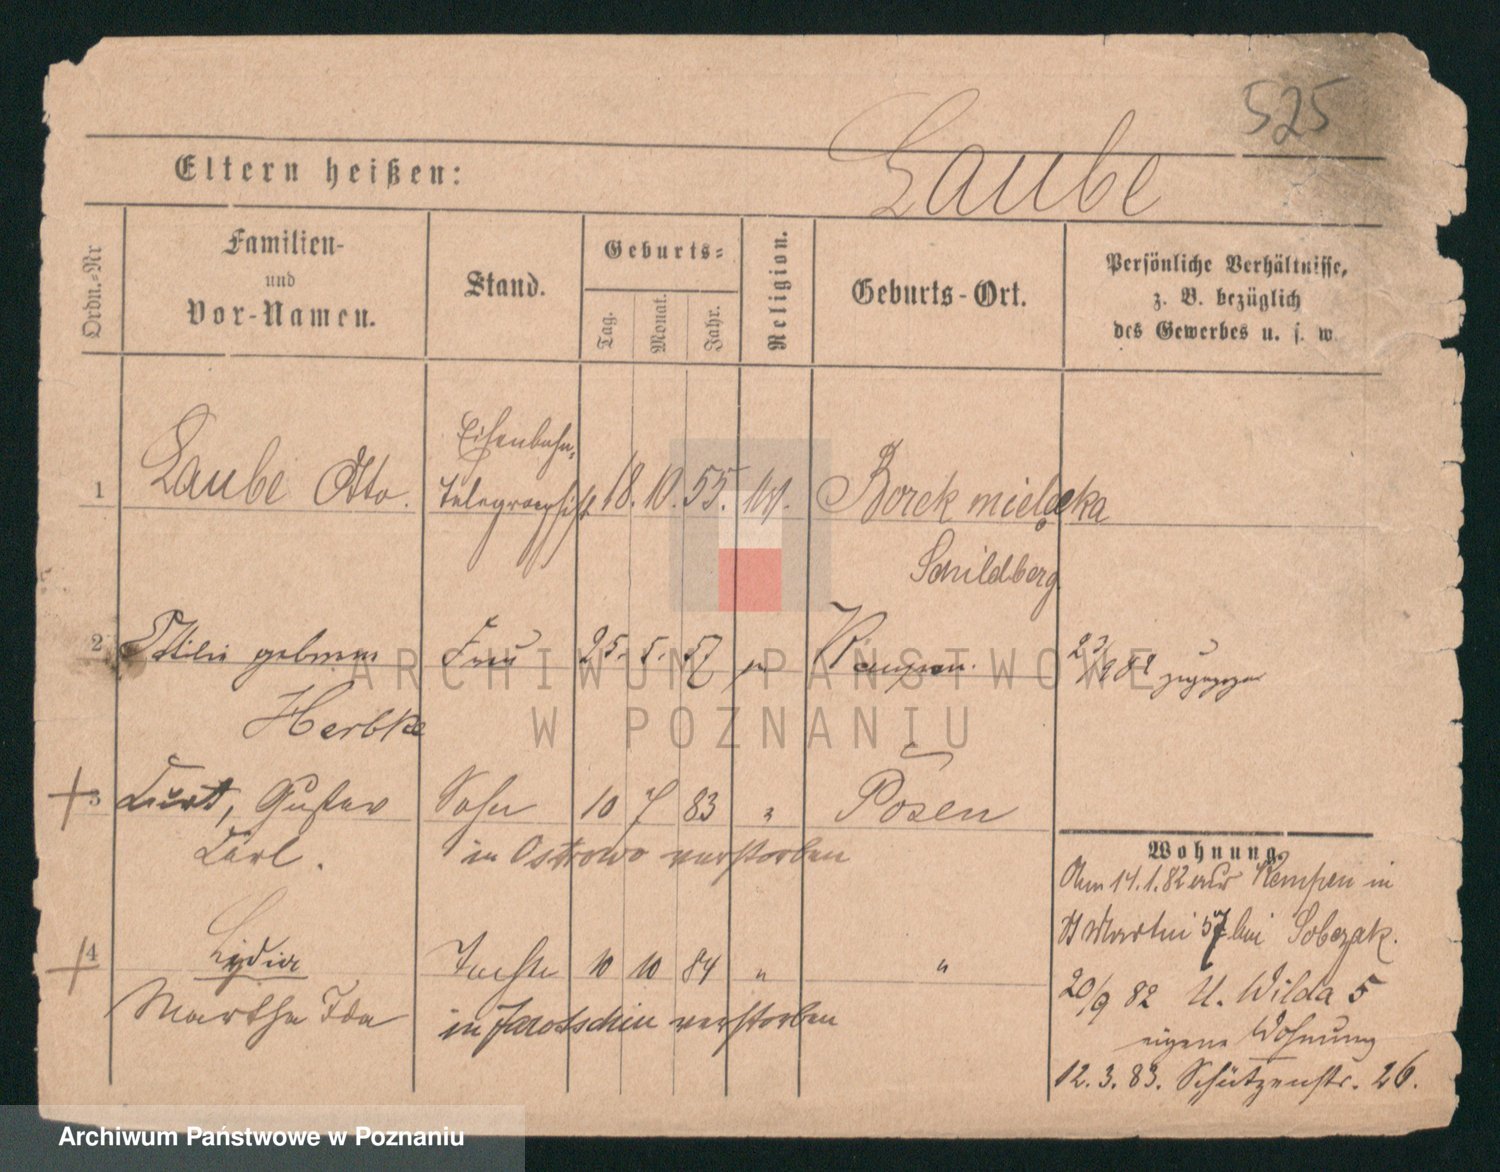 525
Eltern heißen: Laube
Ordn.-Nr
Familien-
und
Vor-Namen.
Stand.
Geburts-
Tag.
Monat.
Jahr.
Religion.
Geburts-Ort.
Persönliche Verhältnisse,
z. B. bezüglich
des Gewerbes u. s. w.
Eisenbahn-
1 Laube Otto. Telegraphist 18. 10. 55. Borek mielęcka
Schildberg
2 Ottilie geborene Frau 25. 5. 57 Kempen. 23/9 82 zugezogen
Herbke
3 Curt, Gustav Sohn 10 7 83 " Posen
Carl. in Ostrowo verstorben
4 Lydia Tochter 10 10 84 " "
Martha Ida in Jarotschin verstorben
Wohnung.
14.1.82 aus Kempen in
St Martin 57 bei Sobczak.
20/9 82 U. Wilda 5
eigene Wohnung
12.3.83. Schützenstr. 26.
ARCHIWUM PAŃSTWOWE
W POZNANIU
Archiwum Państwowe w Poznaniu